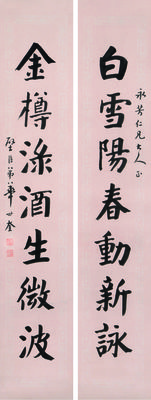 白雪陽春動新詠
永芳仁兄大人正
金樽淥酒生微波
華世奎